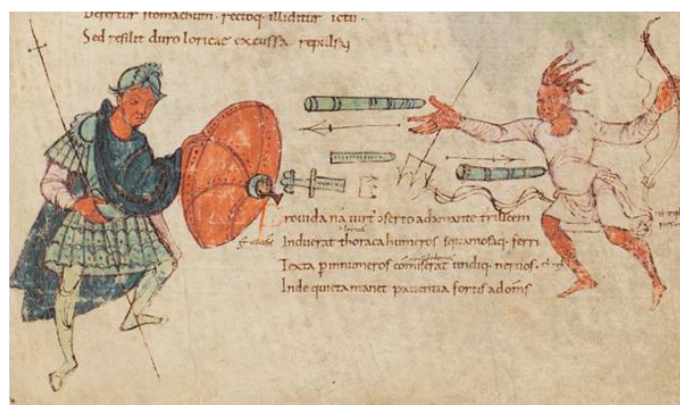 Defertur stomachum · rectoq. illiditur ictu ·
Sed resilit duro loricae excussa repulsu
Provida nā virt᷒ ↄserto adamante trilicem
Induerat thoraca humeros squamosaq. ferri
Texta p innumeros com̄iserat undiq. nervos ·
Inde quieta manet patientia fortis ad om̄s